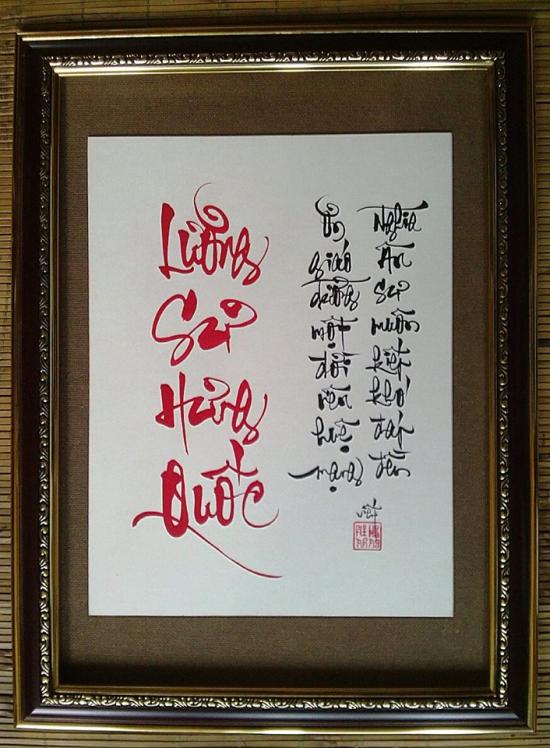 Lương Sư Hưng Quốc
Ơn giáo dưỡng một đời nên huệ mạng
Nghĩa Ân Sư muôn kiếp khó đáp đền